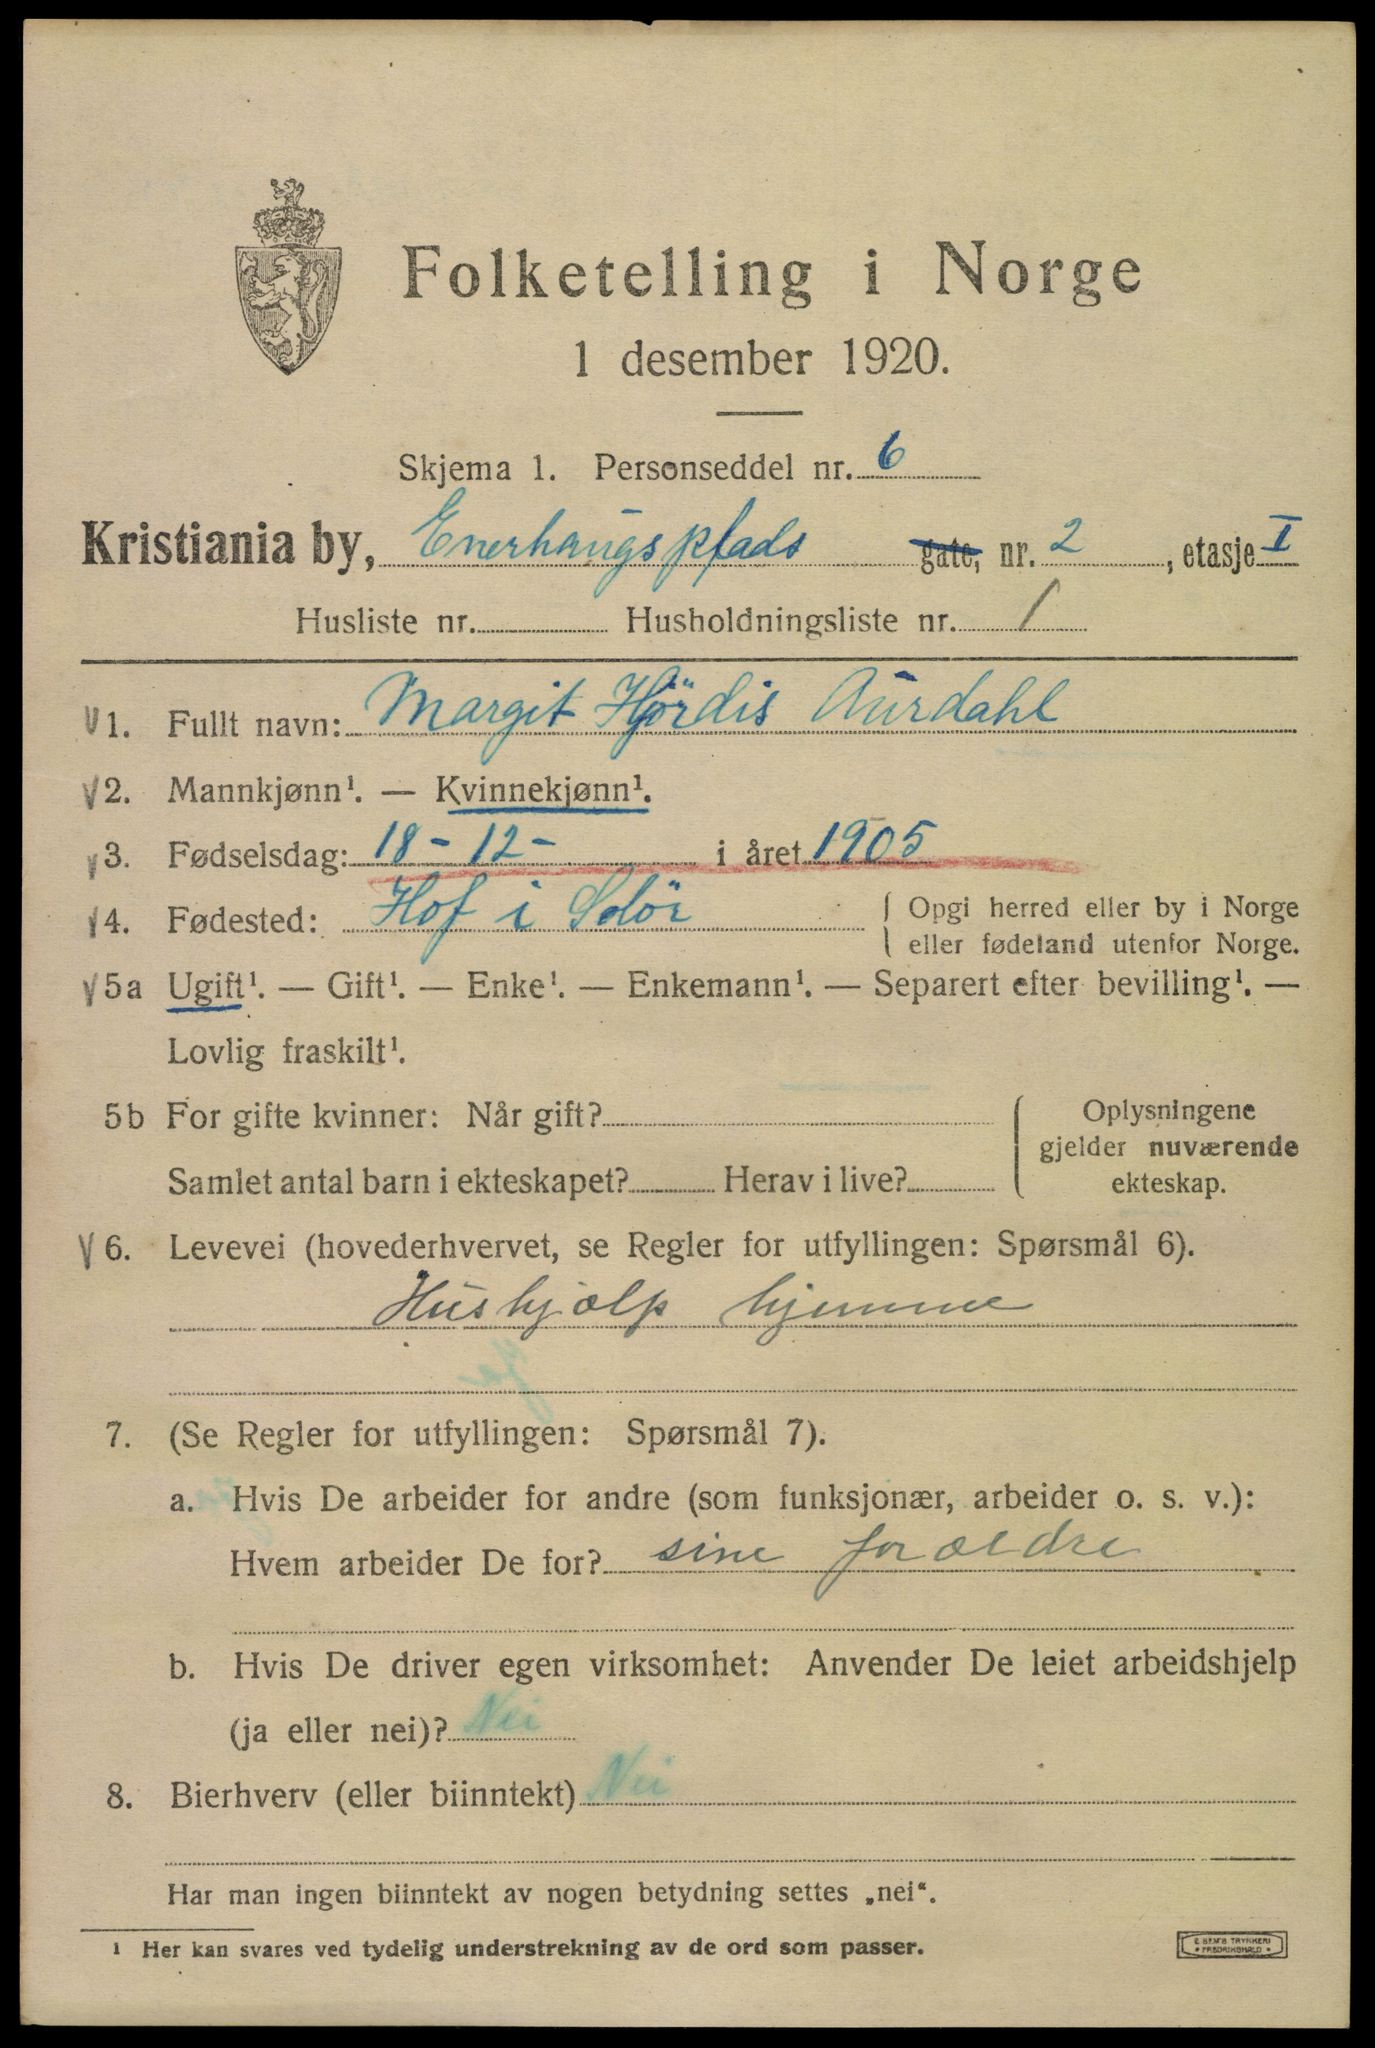 Folketelling i Norge
1 desember 1920.
Skjema 1. Personseddel nr. 6
Kristiania by, Enerhaugsplads gate, nr. 2, etasje I
Husliste nr. Husholdningsliste nr. 1
1. Fullt navn: Margit Hjördis Aurdahl
2. Mannkjønn¹. — Kvinnekjønn¹.
3. Fødselsdag: 18-12- i året 1905
4. Fødested: Hof i Solör { Opgi herred eller by i Norge
eller fødeland utenfor Norge.
5a Ugift¹. — Gift¹. — Enke¹. — Enkemann¹. — Separert efter bevilling¹. —
Lovlig fraskilt¹.
5b For gifte kvinner: Når gift?
Samlet antal barn i ekteskapet? Herav i live?
{ Oplysningene
gjelder nuværende
ekteskap.
6. Levevei (hovederhvervet, se Regler for utfyllingen: Spørsmål 6).
Hushjælp hjemme
7. (Se Regler for utfyllingen: Spørsmål 7).
a. Hvis De arbeider for andre (som funksjonær, arbeider o. s. v.):
Hvem arbeider De for? sine forældre
b. Hvis De driver egen virksomhet: Anvender De leiet arbeidshjelp
(ja eller nei)? Nei
8. Bierhverv (eller biinntekt) Nei
Har man ingen biinntekt av nogen betydning settes „nei“.
¹ Her kan svares ved tydelig understrekning av de ord som passer.
E. SEM'S TRYKKERI
• FREDRIKSHALD •